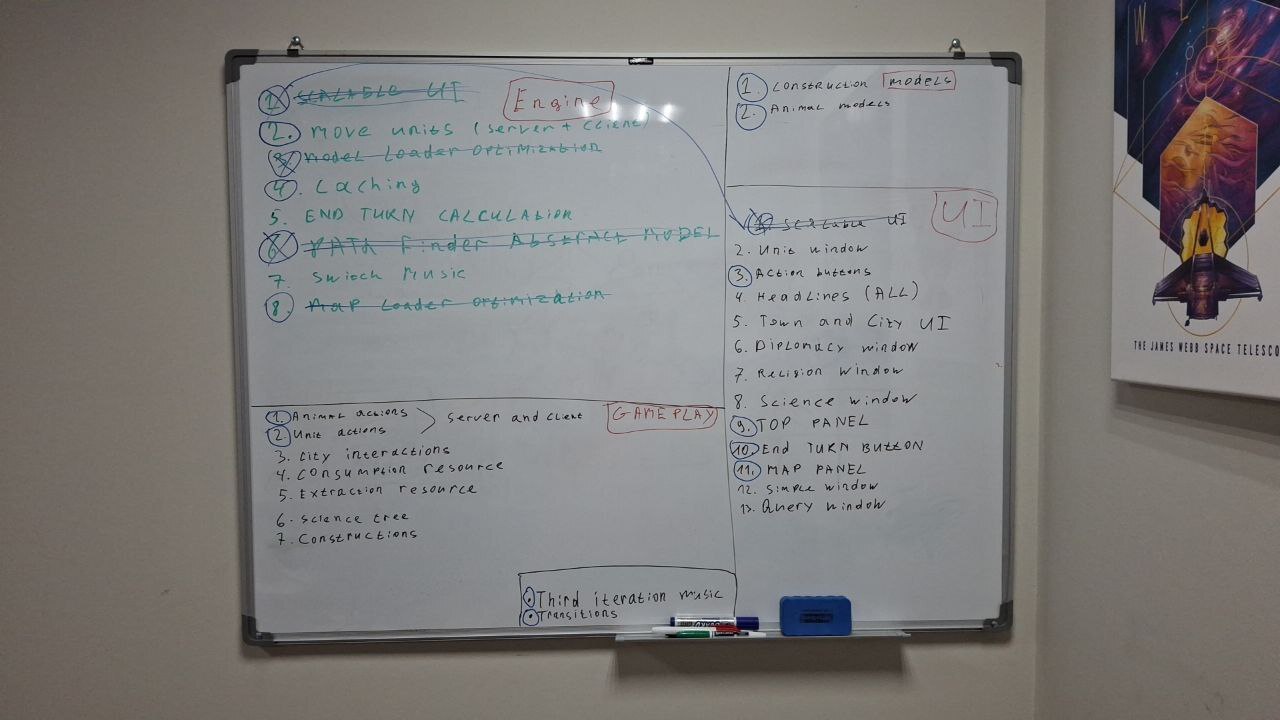 1. SCALABLE UI
Engine
2. MOVE UNITS (SERVER + CLIENT)
3. MODEL LOADER OPTIMIZATION
4. Caching
5. END TURN CALCULATION
6. PATH Finder ABSTRACT MODEL
7. Swich Music
8. MAP LOADER OPTIMIZATION
1. Construction models
2. Animal models
UI
1. SCALABLE UI
2. Unit window
3. Action buttons
4. HeadLines (ALL)
5. Town and City UI
6. Diplomacy window
7. Religion window
8. Science window
9. TOP PANEL
10. End TURN BUTTON
11. MAP PANEL
12. Simple window
13. Query window
GAMEPLAY
1. Animal actions
2. Unit actions
server and client
3. City interactions
4. Consumption resource
5. Extraction resource
6. Science tree
7. Constructions
Third iteration music
Transitions
THE JAMES WEBB SPACE TELESCO